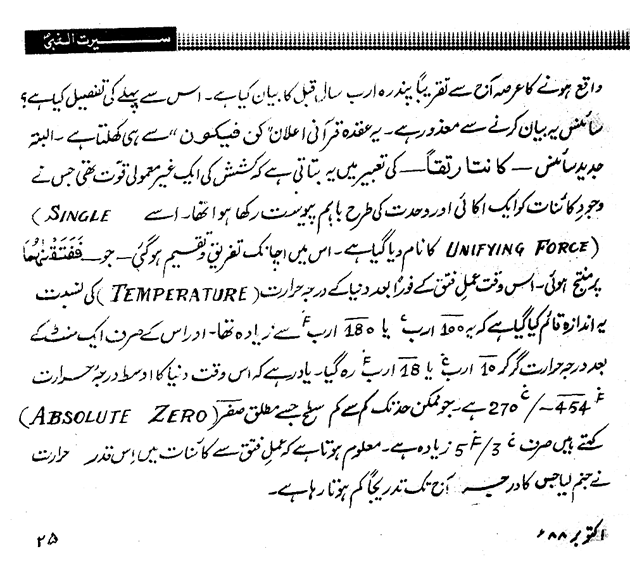 سیرت النبیؐ
واقع ہونے کا عرصہ آج سے تقریباً پندرہ ارب سال قبل کا بیان کیا ہے۔ اس سے پہلے کی تفصیل کیا ہے؟
سائنس یہ بیان کرنے سے معذور ہے۔ یہ عقدہ قرآنی اعلان ”کن فیکون“ سے ہی کھلتا ہے۔ البتہ
جدید سائنس — کانتا رتقاً — کی تعبیر میں یہ بتاتی ہے کہ کشش کی ایک غیر معمولی قوت تھی جس نے
وجودِ کائنات کو ایک اکائی اور وحدت کی طرح باہم پیوست رکھا ہوا تھا۔ اسے (SINGLE
UNIFYING FORCE) کا نام دیا گیا ہے۔ اس میں اچانک تفریق و تقسیم ہوگئی — جو — فَفَتَقْنٰهُمَا
پر منتج ہوئی۔ اس وقت عمل فتق کے فوراً بعد دنیا کے درجہ حرارت (TEMPERATURE) کی نسبت
یہ اندازہ قائم کیا گیا ہے کہ یہ 100 ارب ْC یا 180 ارب ْF سے زیادہ تھا۔ اور اس کے صرف ایک منٹ کے
بعد درجہ حرارت گر کر 10 ارب ْC یا 18 ارب ْF رہ گیا۔ یاد رہے کہ اس وقت دنیا کا اوسط درجہ حرارت
-454 ْF / 270 ْC ہے۔ جو ممکن حد تک کم سے کم سطح جسے مطلق صفر (ABSOLUTE ZERO)
کہتے ہیں صرف 3 ْC / 5 ْF زیادہ ہے۔ معلوم ہوتا ہے کہ عمل فتق سے کائنات میں اس قدر حرارت
نے جنم لیا جس کا درجہ آج تک تدریجاً کم ہوتا رہا ہے۔
اکتوبر ۸۸ء
۲۵